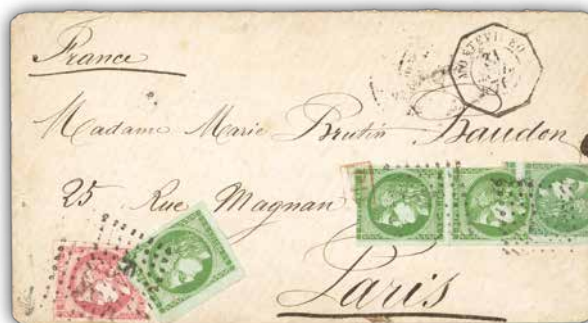 France
MONTEVIDEO
12
Madame Marie Brutin Baudon
25 Rue Magnan
Paris